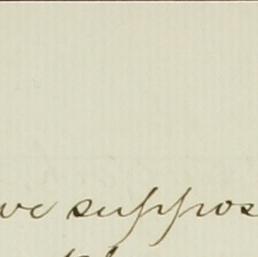 ve suppos